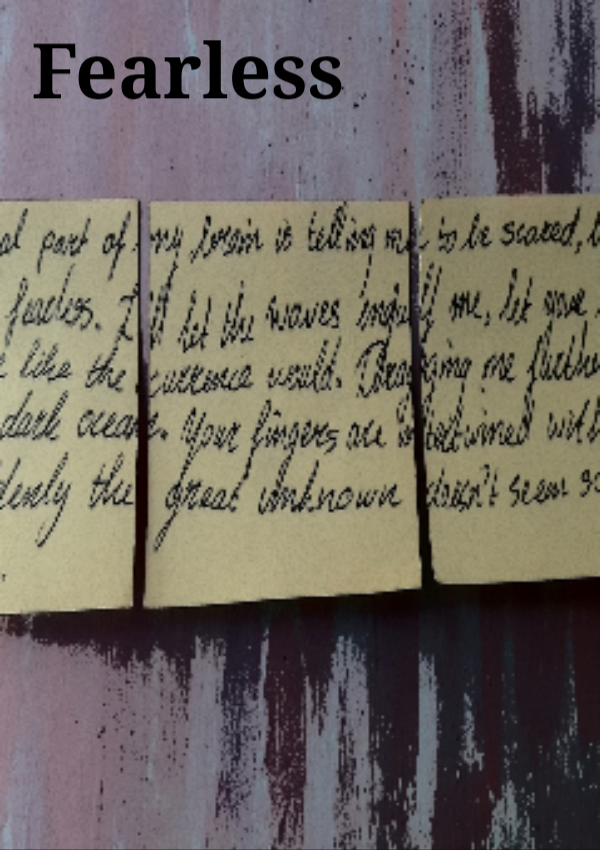 Fearless
al part of my brain is telling me to be scared,
fearless. I'll let the waves engulf me, let
like the currence would. Dragging me
dark ocean. Your fingers are intertwined with
denly the great unknown doesn't seem so